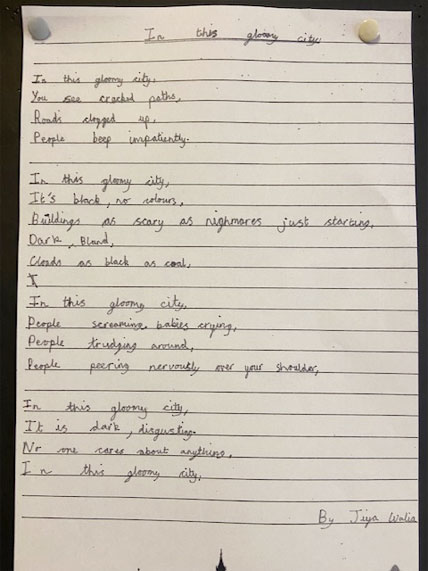 In this gloomy city
In this gloomy city,
You see cracked paths,
Roads clogged up,
People beep impatiently.
In this gloomy city,
It's black, no colours,
Buildings as scary as nighmares just starting.
Dark, Bland,
Clouds as black as coal,
I
In this gloomy city,
People screaming, babies crying,
People trudging around,
People peering nervously over your shoulder,
In this gloomy city,
It is dark, disgusting.
No one cares about anything,
In this gloomy city,
By Jiya Walia